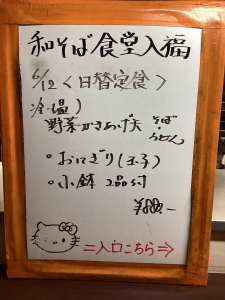 和そば食堂入福
6/12<日替定食>
冷・温)
野菜かきあげ天 そば・うどん
・おにぎり(玉子)
・小鉢 2品付
=入口こちら⇒